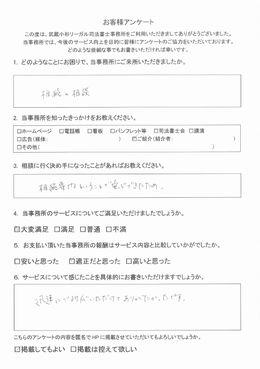 お客様アンケート
この度は、武蔵小杉リーガル司法書士事務所をご利用いただきましてありがとうございました。
当事務所では、今後のサービス向上を目的に皆様にアンケートのご協力をいただいております。
どのような些細な事でもお書きいただければ幸いです。
1. どのようなことにお困りで、当事務所にご来所いただきましたか。
相続の相談
2. 当事務所を知ったきっかけをお教えください。
□ホームページ □電話帳 □看板 □パンフレット等 □司法書士会 □講演
□広告(媒体: ) ☑ご紹介(紹介者: )
□その他( )
3. 相談に行く決め手になったことがあればお教えください。
相続専門ということで安心できたため。
4. 当事務所のサービスについてご満足いただけましたでしょうか。
☑大変満足 □満足 □普通 □不満
5. お支払い頂いた当事務所の報酬はサービス内容と比較していかがでしたか。
□安いと思った ☑適正だと思った □高いと思った
6. サービスについて感じたことを具体的にお書きいただけますでしょうか。
迅速にご対応いただけてありがたかったです。
こちらのアンケートの内容を匿名でHPに掲載させていただいてもよろしいでしょうか。
☑掲載してもよい □掲載は控えて欲しい